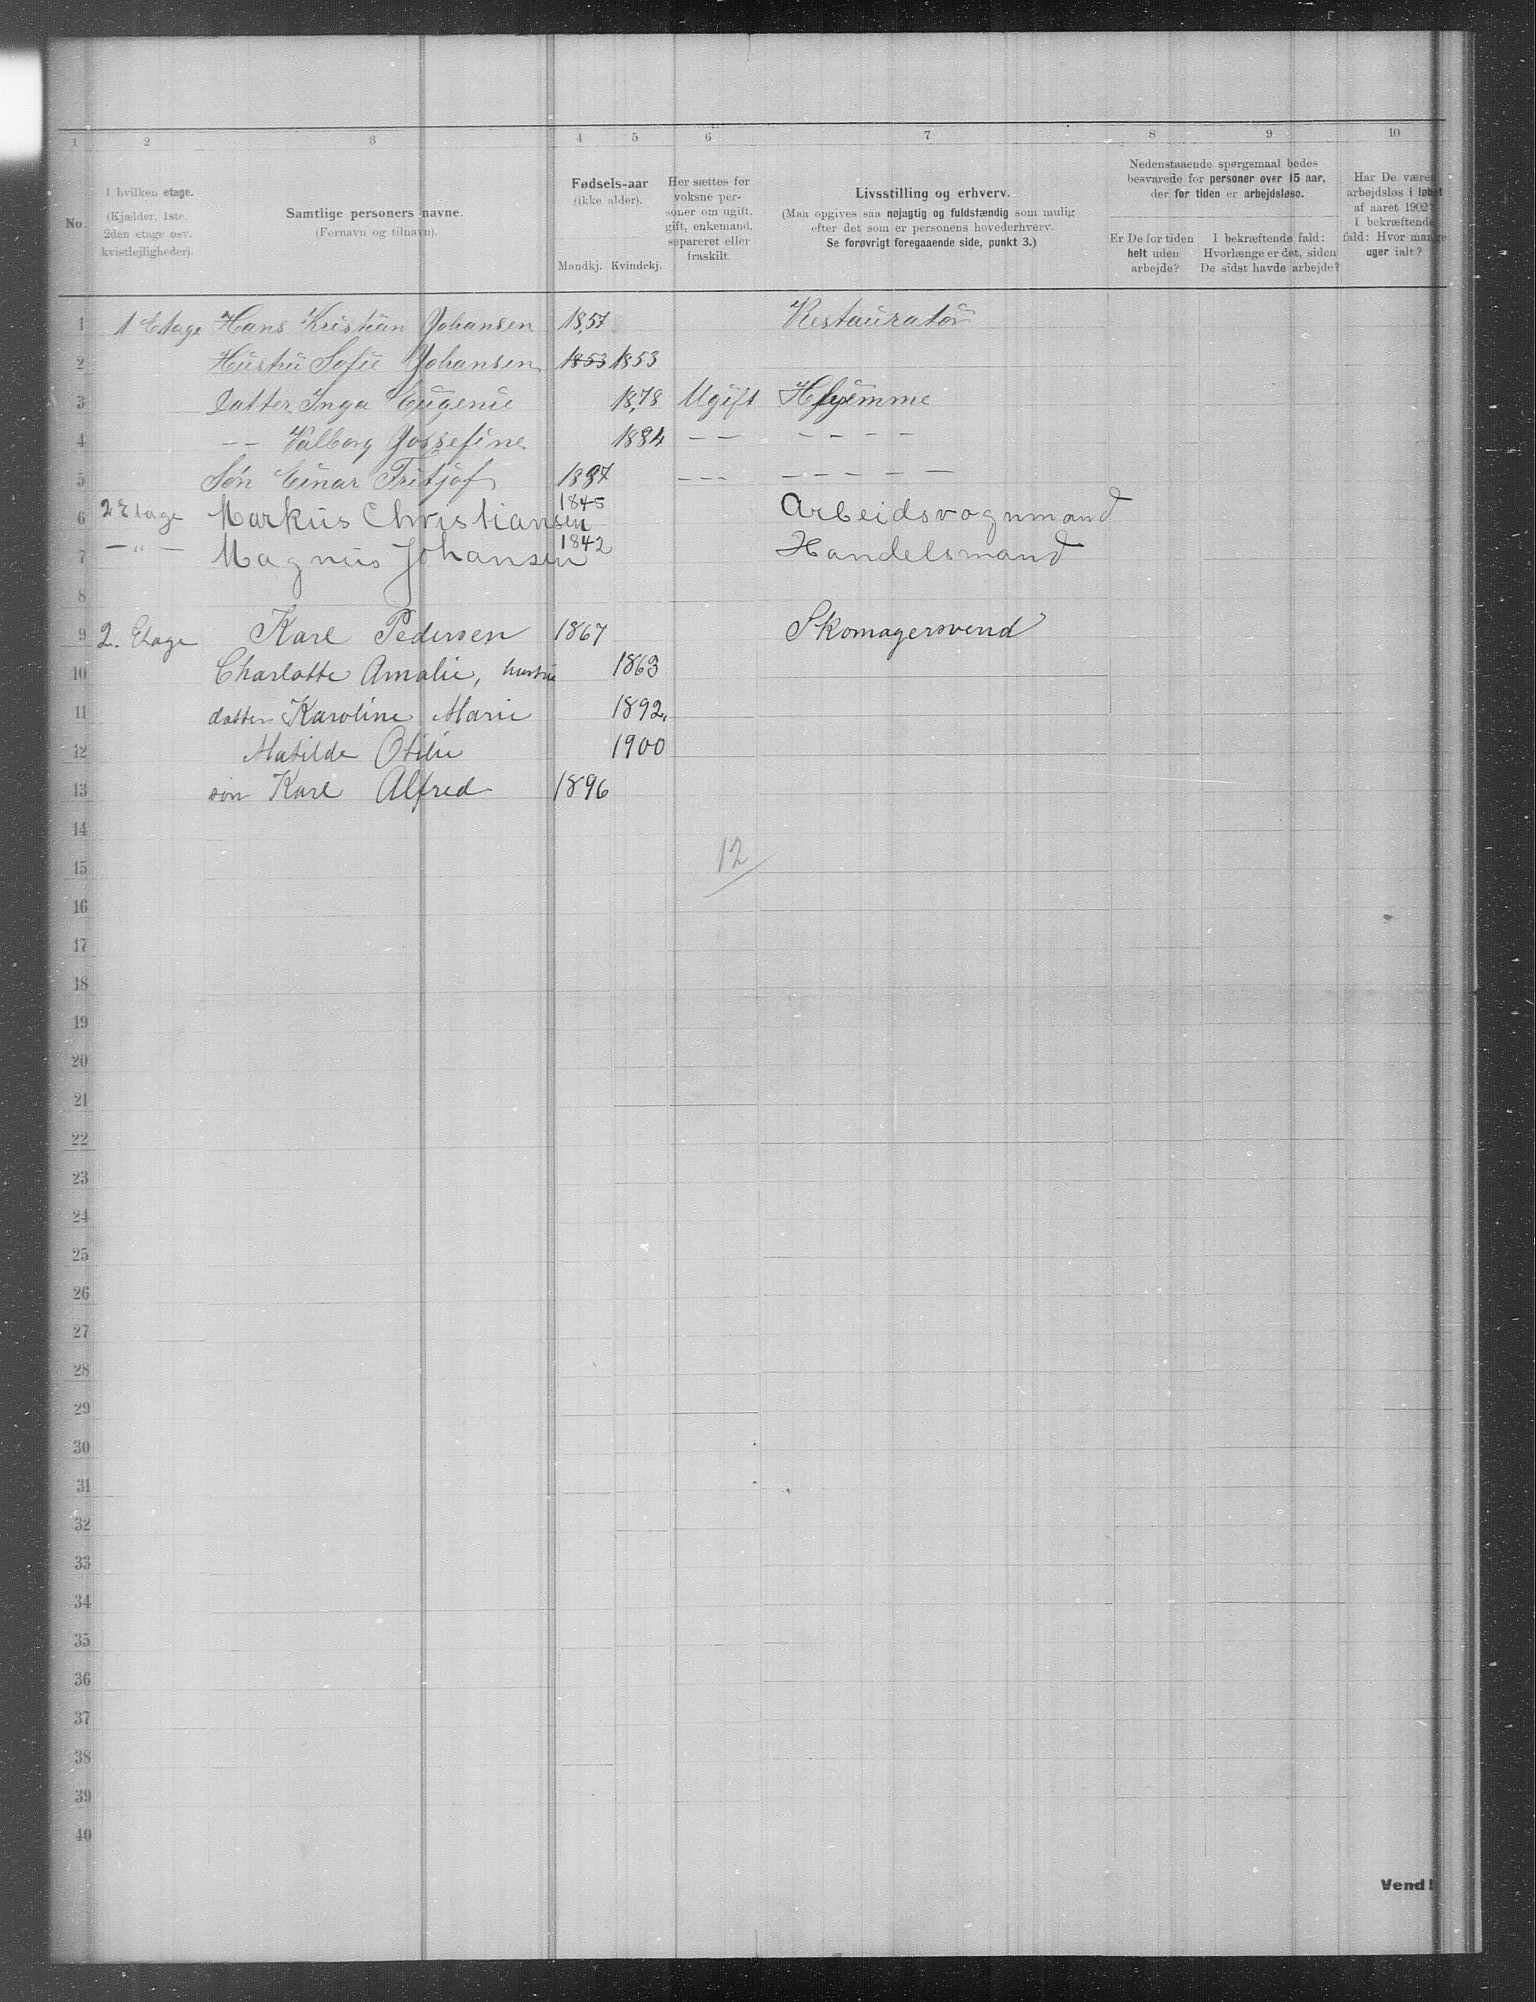 1 2 3 4 5 6 7 8 9 10
No.
I hvilken etage.
(Kjælder, 1ste.
2den etage osv.
kvistleiligheder).
Samtlige personers navne.
(Fornavn og tilnavn).
Fødsels-aar
(ikke alder).
Mandkj. Kvindekj.
Her sættes for
voksne per-
soner om ugift.
gift, enkemand,
separeret eller
fraskilt.
Livsstilling og erhverv.
(Maa opgives saa nøjagtig og fuldstændig som mulig
efter det som er personens hovederhverv.
Se forøvrigt foregaaende side, punkt 3.)
Nedenstaaende spørgsmaal bedes
besvarede for personer over 15 aar,
der for tiden er arbejdsløse.
Er De for tiden
helt uden
arbejde?
I bekræftende fald:
Hvorlænge er det, siden
De sidst havde arbejde?
Har De været
arbejdsløs i løbet
af aaret 1902?
I bekræftende
fald: Hvor mange
uger ialt?
1 1 Etage Hans Kristian Johansen 1857 Restauratør
2 Hustru Sofie Johansen 1853 1853
3 Datter Inga Eugenie 1878 Ugift Hjemme
4 -- Valborg Jossefine 1884 -- ----
5 Søn Einar Fritjof 1897 --- -----
6 2 Etage Markus Christiansen 1845 Arbeidsvognmand
7 - " - Magnus Johansen 1842 Handelsmand
8
9 2. Etage Karl Pedersen 1867 Skomagersvend
10 Charlotte Amalie, hustru 1863
11 datter Karoline Marie 1892.
12 Matilde Otilie 1900
13 søn Karl Alfred 1896
14
15 12
16
17
18
19
20
21
22
23
24
25
26
27
28
29
30
31
32
33
34
35
36
37
38
39
40
Vend!